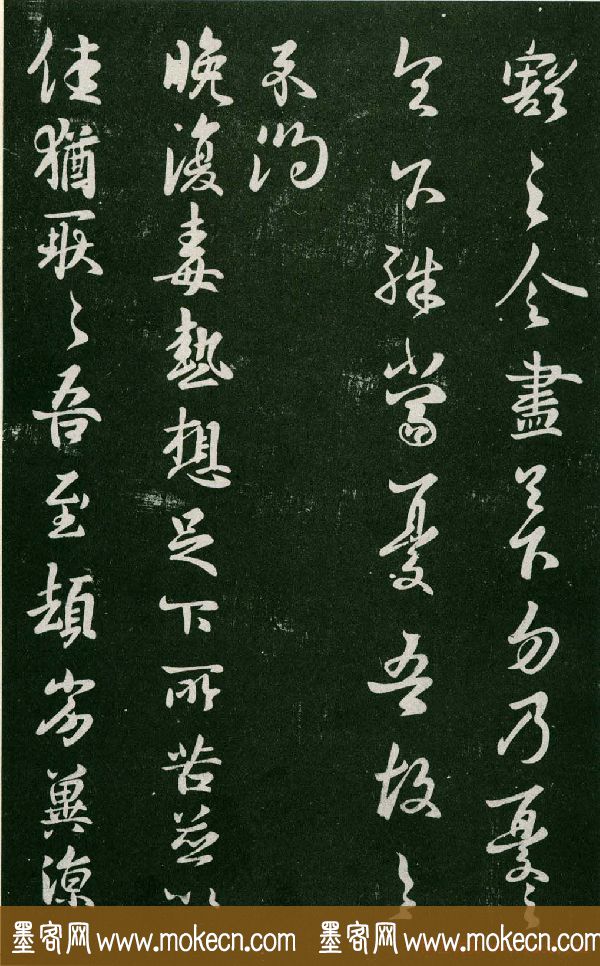 豁之令盡足下勿乃憂之
足下殊當憂吾故之
不得
晚復毒熱想足下所苦並以
佳猶耿耿吾至頓劣冀涼
墨客网 www.mokecn.com 墨客网 www.mokecn.com